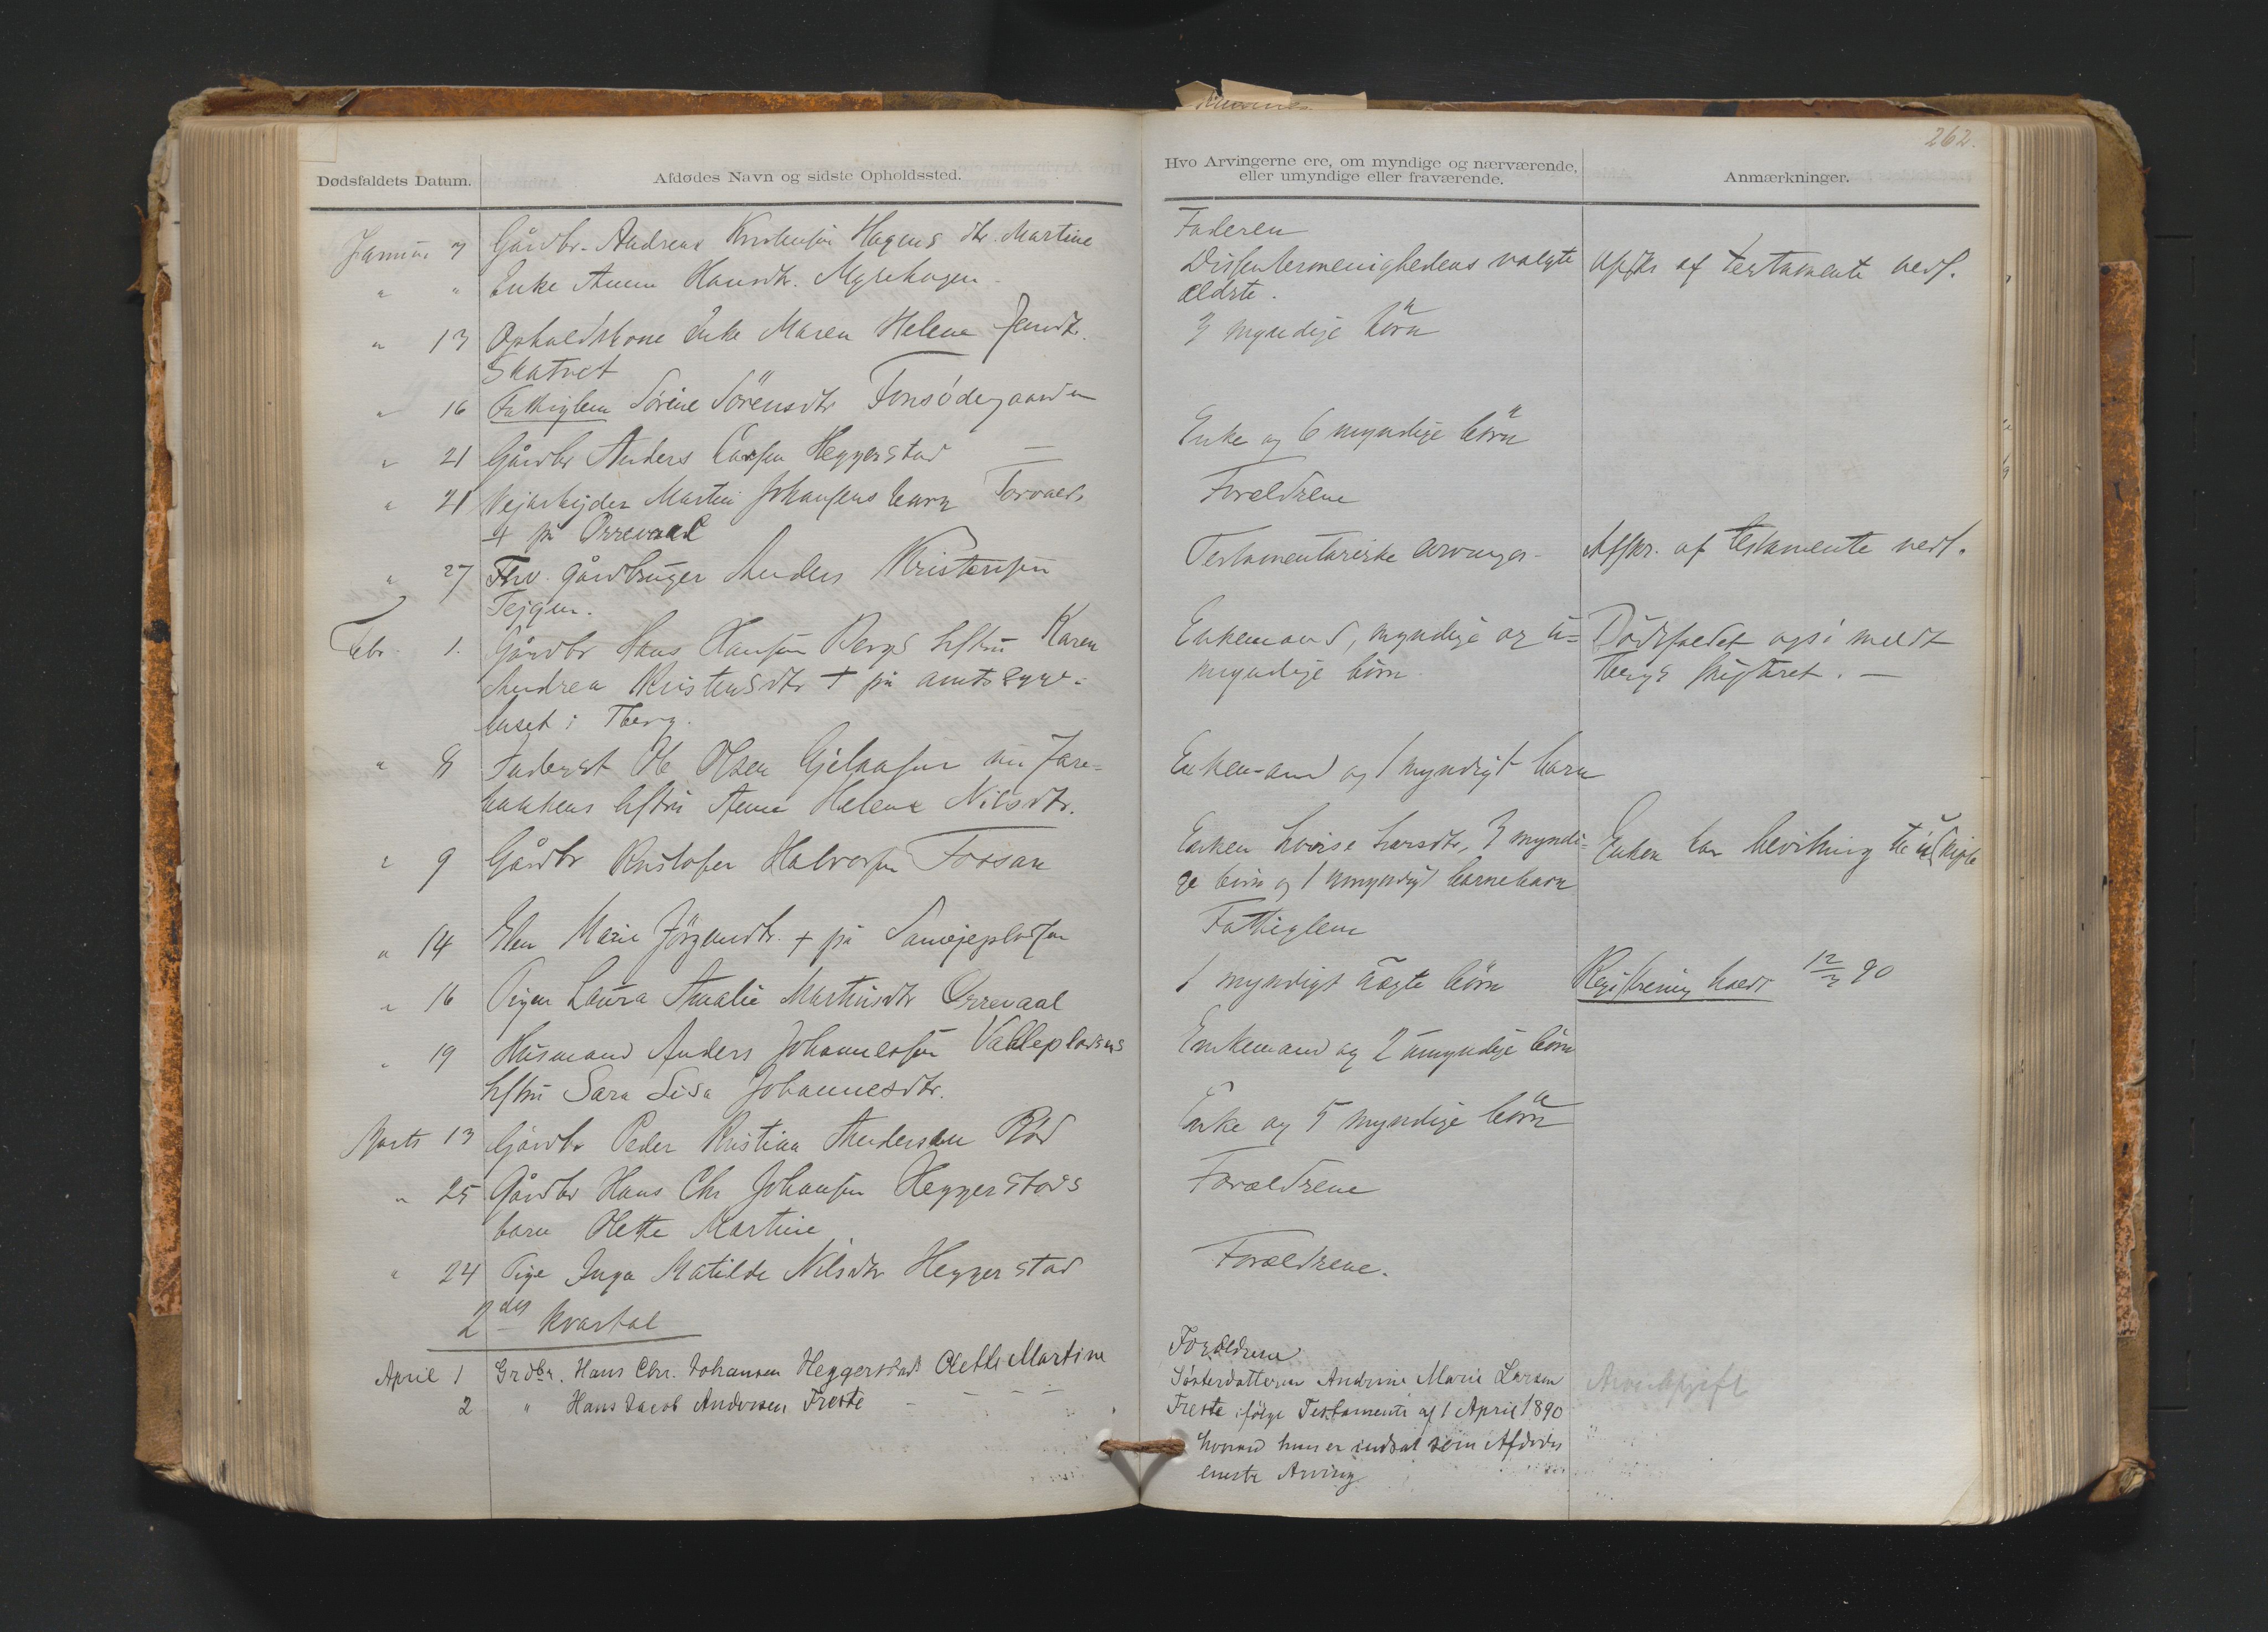 262.
Dødsfaldets Datum.
Afdødes Navn og sidste Opholdssted.
Januar 7 Gårdbr. Andreas Kristensen Hagens dtr. Martine
" " Enke Anna Hansdtr. Myrehagen
" 13 Opholdskone Enke Maren Helene Jensdtr.
Skatvet
" 16 Fattiglem Sörine Sörensdtr Tonsödegaarden
" 21 Gårdbr Anders Heggerstad —
" 21 Vejarbejder Martin Johansens barn Torvald
+ på Orrevaal
" 27 Fhv. gårdbruger Anders Kristensen
Tejgen.
Febr. 1. Gårdbr Hans Hansen Bergs hstru Karen
Andrea Kristensdtr + på amtssyge-
huset i Tberg.
" 8 Inderst Ole Olsen
bakkens hstru Anne Helene Nilsdtr.
" 9 Gårdbr Kristofer Halvorsen Fossan
" 14 Elen Marie Jörgensdtr. + på
" 16 Pigen Laura Amalie Martinsdtr Orrevaal
" 19 Husmand Anders Johannessen Vallepladsens
hstru Sara Lisa Johannesdtr.
Marts 13 Gårdbr Peder Kristian Andersen Röd
" 25 Gårdbr Hans Chr Johansen Heggerstads
barn Olette Martine
" 24 Pige Inga Matilde Nilsdtr Heggerstad
2det kvartal
April 1 Grdbr. Hans Chr. Johansen Heggerstad Olette Martine
2 " Hans Jacob Andersen Freste — — — —
Hvo Arvingerne ere, om myndige og nærværende,
eller umyndige eller fraværende.
Faderen
Dissentermenighedens valgte
ældste.
3 myndige börn
Enke og 6 myndige börn
Forældrene
Testamentariske arvinger
Enkemand, myndige og u-
myndige börn
Enkemand og 1 myndigt barn
Enken Larsdtr, 3 myndi-
ge börn og 1 umyndigt barnebarn
Fattiglem
1 myndigt uægte börn
Enkemand og 2 umyndige börn
Enke og 5 myndige börn
Forældrene
Forældrene.
Forældrene
Søsterdatteren Andrine Marie Larsen
Freste ifølge Testamente af 1 April 1890
hvorved hun er indsat som Afdødes
eneste Arving
Anmærkninger.
Afskr af testamente vedl.
Afskr. af testamente vedl.
Dödsfaldet også meldt
Tbergs skifteret. —
Enken har bevilning til uskifte
Registrering holdt 12/3 90
Arveafgift